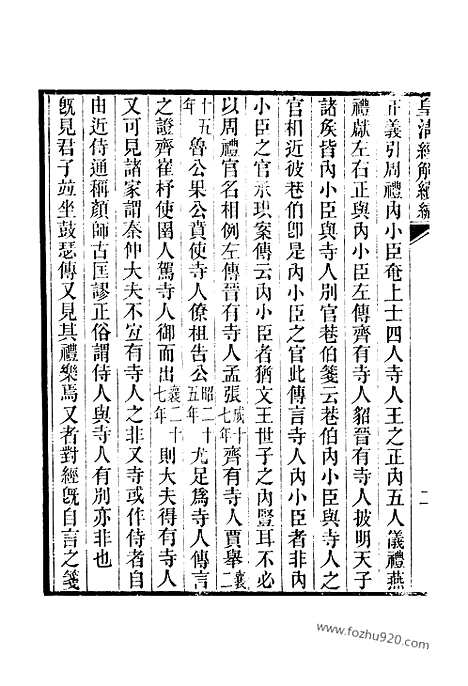 皇清經解續編
二
正義引周禮內小臣奄上士四人寺人王之正內五人儀禮燕
禮獻左右正與內小臣左傳齊有寺人貂晉有寺人披明天子
諸矦皆內小臣與寺人別官巷伯箋云巷伯內小臣與寺人之
官相近彼巷伯卽是內小臣之官此傳言寺人內小臣者非內
小臣之官承珙案傳云內小臣者猶文王世子之內豎耳不必
以周禮官名相例左傳晉有寺人孟張成十七年齊有寺人賈舉襄二
十五年魯公果公賁使寺人僚柤告公昭二十五年尤足爲寺人傳言
之證齊崔杼使圉人駕寺人御而出襄二十七年則大夫得有寺人
又可見諸家謂秦仲大夫不宐有寺人之非又寺或作侍者自
由近侍通稱顏師古匡謬正俗謂侍人與寺人有別亦非也
旣見君子竝坐鼓瑟傳又見其禮樂焉又者對經旣自言之箋
www.fozhu920.com